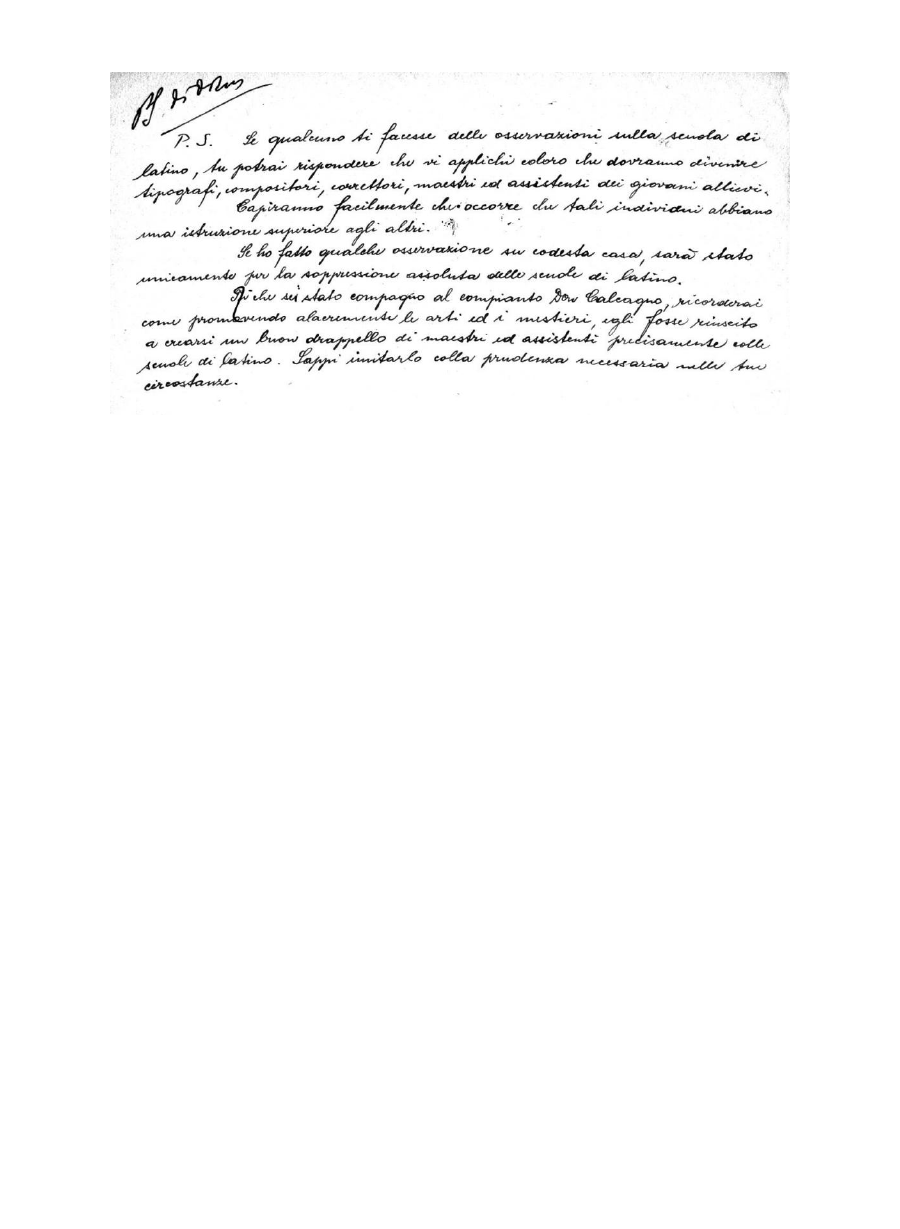 P. S. Se qualcuno ti facesse delle osservazioni sulla scuola di
latino, tu potrai rispondere che vi applichi coloro che dovranno divenire
tipografi, compositori, correttori, maestri ed assistenti dei giovani allievi.
Capiranno facilmente che occorre che tali individui abbiano
una istruzione superiore agli altri.
Se ho fatto qualche osservazione su codesta casa, sarà stato
unicamente per la soppressione assoluta delle scuole di latino.
che sei stato compagno al compianto Don Calcagno, ricorderai
come promovendo alacremente le arti ed i mestieri, egli fosse riuscito
a crearsi un buon drappello di maestri ed assistenti precisamente colle
scuole di latino. Sappi imitarlo colla prudenza necessaria nelle tue
circostanze.